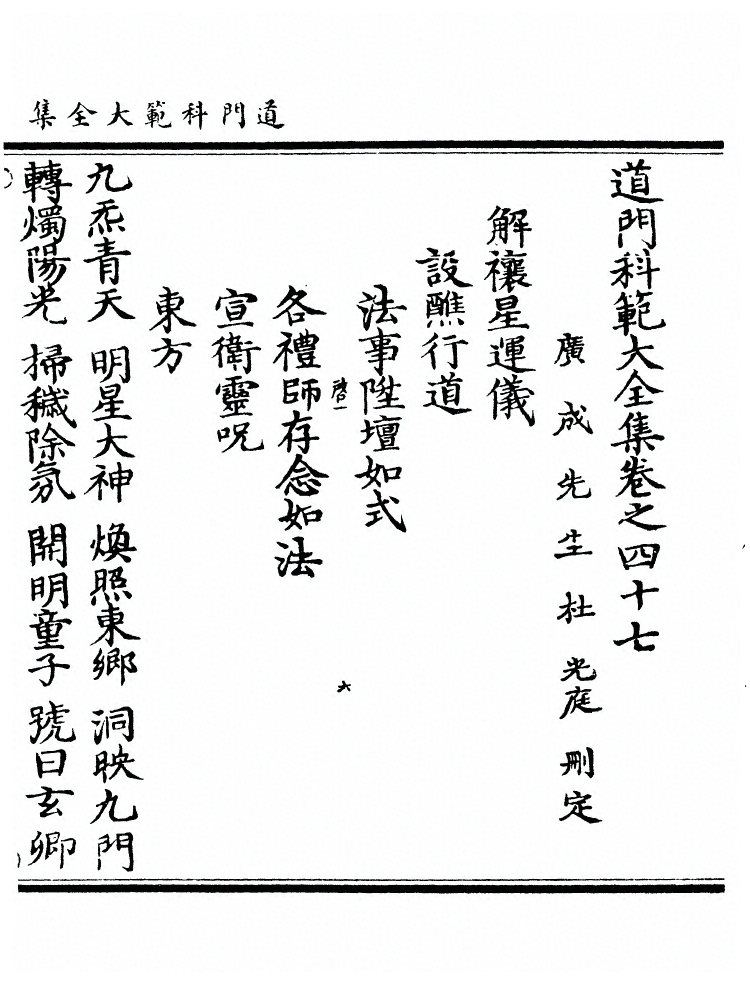 道門科範大全集
道門科範大全集卷之四十七
廣成先生杜光庭刪定
解禳星運儀
設醮行道
法事陞壇如式
啓一
六
各禮師存念如法
宣衛靈呪
東方
九炁青天 明星大神 煥照東鄉 洞映九門
轉燭陽光 掃穢除氛 開明童子 號曰玄卿